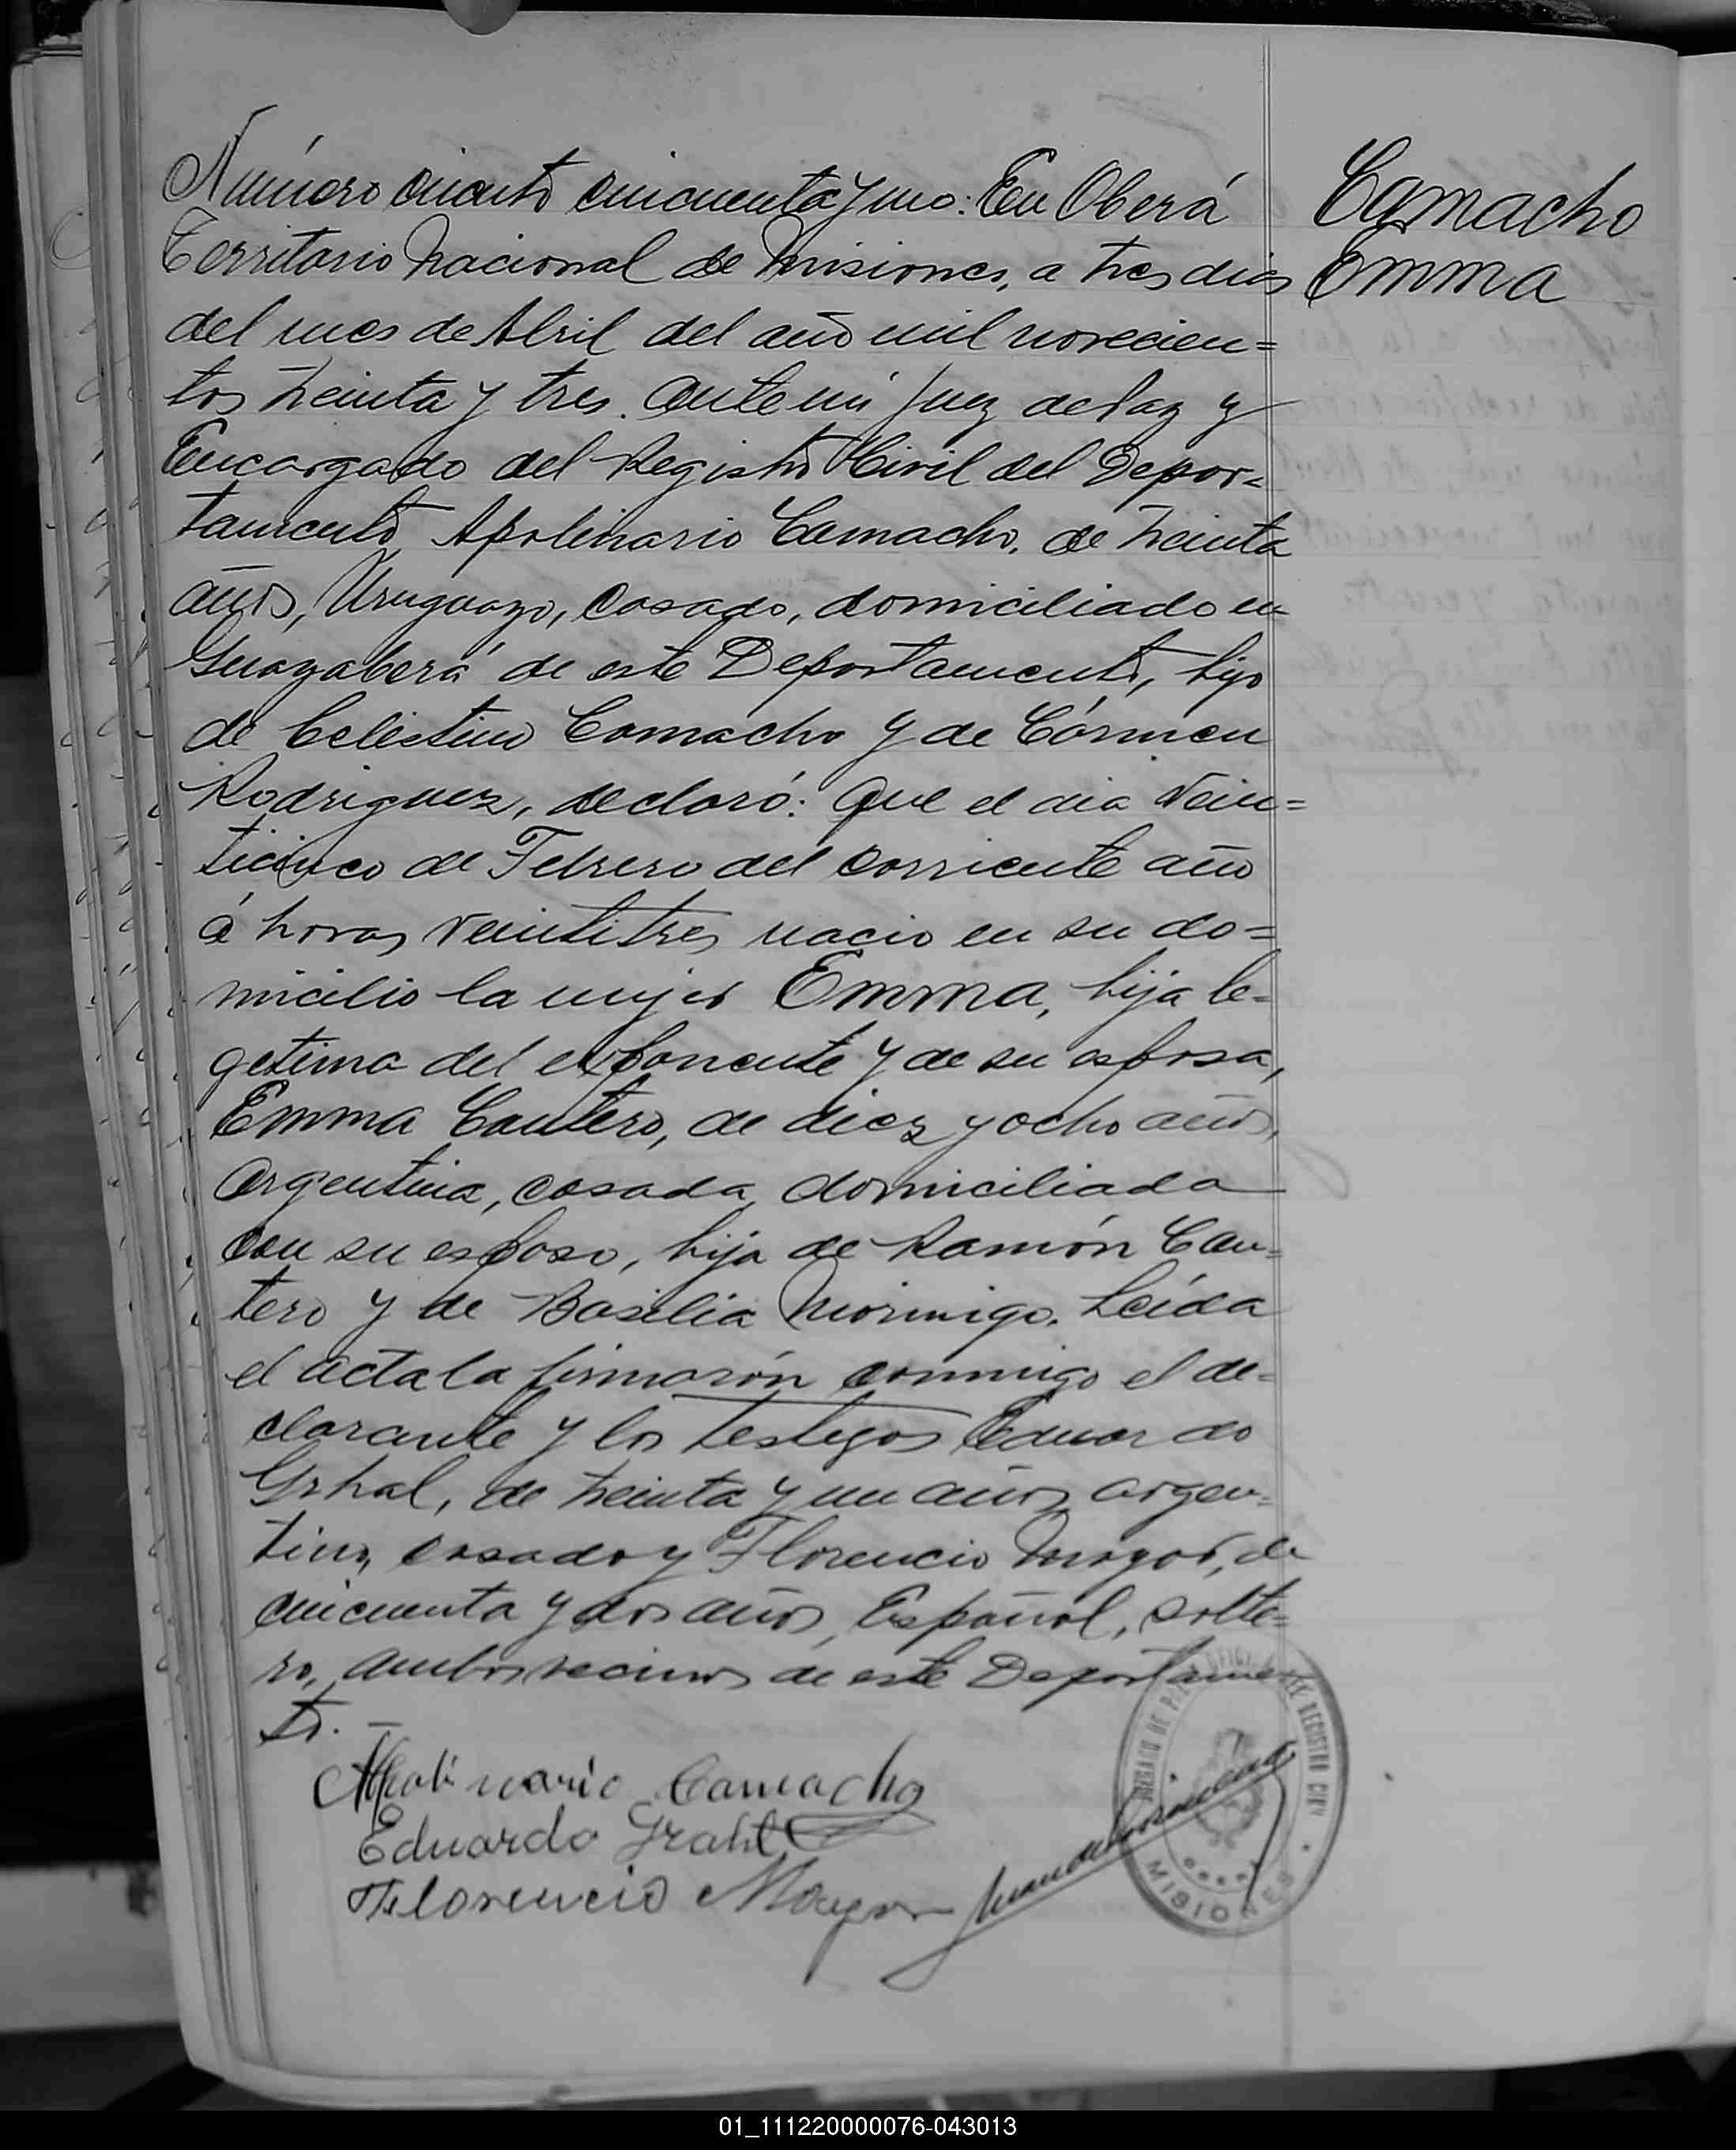 Número ciento cincuenta y uno: En Oberá
Territorio Nacional de Misiones, a tres dias
del mes de Abril del año mil novecien=
tos treinta y tres. Ante mi Juez de Paz y
Encargado del Registro Civil del Depar=
tamento Apolinario Camacho, de treinta
años, Uruguayo, casado, domiciliado en
Guayaberá de este Departamento, hijo
de Celestino Camacho y de Cármen
Rodriguez, declaró: Que el dia vein=
ticinco de Febrero del corriente año
á horas veintitres nacio en su do=
micilio la mujer Emma, hija le=
getima del exponente y de su esposa,
Emma Cantero, de diez y ocho años,
Argentina, casada, domiciliada
con su esposo, hija de Ramón Can=
tero y de Basilia Morinigo. Leída
el acta la firmarón conmigo el de=
clarante y los testigos Eduardo
Grhal, de treinta y un años, argen=
tino, casado y Florencio Mayor, de
cincuenta y dos años, Español, solte=
ro, ambos vecinos de este Departamen
to.
Camacho
Emma
Apolinario Camacho
Eduardo Grahl
Florencio Mayor
JUZGADO DE PAZ
REGISTRO CIVIL
MISIONES
01_111220000076-043013